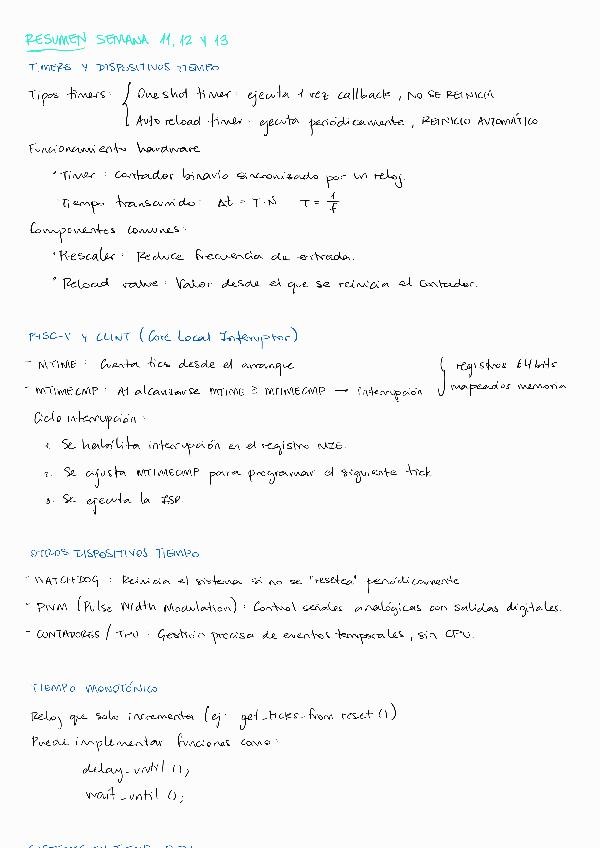 RESUMEN SEMANA 11, 12 Y 13
TIMERS Y DISPOSITIVOS TIEMPO
Tipos timers: { One shot timer: ejecuta 1 vez callback, NO SE REINICIA
Auto reload timer: ejecuta periódicamente, REINICIO AUTOMÁTICO
Funcionamiento hardware
• Timer: contador binario sincronizado por un reloj.
Tiempo transcurrido: Δt = T·N T = 1/f
Componentes comunes:
• Prescaler: Reduce frecuencia de entrada.
• Reload value: Valor desde el que se reinicia el contador.
RISC-V Y CLINT (Core Local Interruptor)
- MTIME: Cuenta tics desde el arranque { registros 64 bits
- MTIMECMP: Al alcanzarse MTIME ≥ MTIMECMP → Interrupción mapeados memoria
Ciclo interrupción:
1. Se habilita interrupción en el registro MIE.
2. Se ajusta MTIMECMP para programar el siguiente tick
3. Se ejecuta la ISR.
OTROS DISPOSITIVOS TIEMPO
- WATCHDOG: Reinicia el sistema si no se "resetea" periódicamente
- PWM (Pulse Width Modulation): Control señales analógicas con salidas digitales.
- CONTADORES / TPU: Gestión precisa de eventos temporales, sin CPU.
TIEMPO MONOTÓNICO
Reloj que solo incrementa (ej: get_ticks_from_reset())
Puede implementar funciones como:
delay_until();
wait_until();